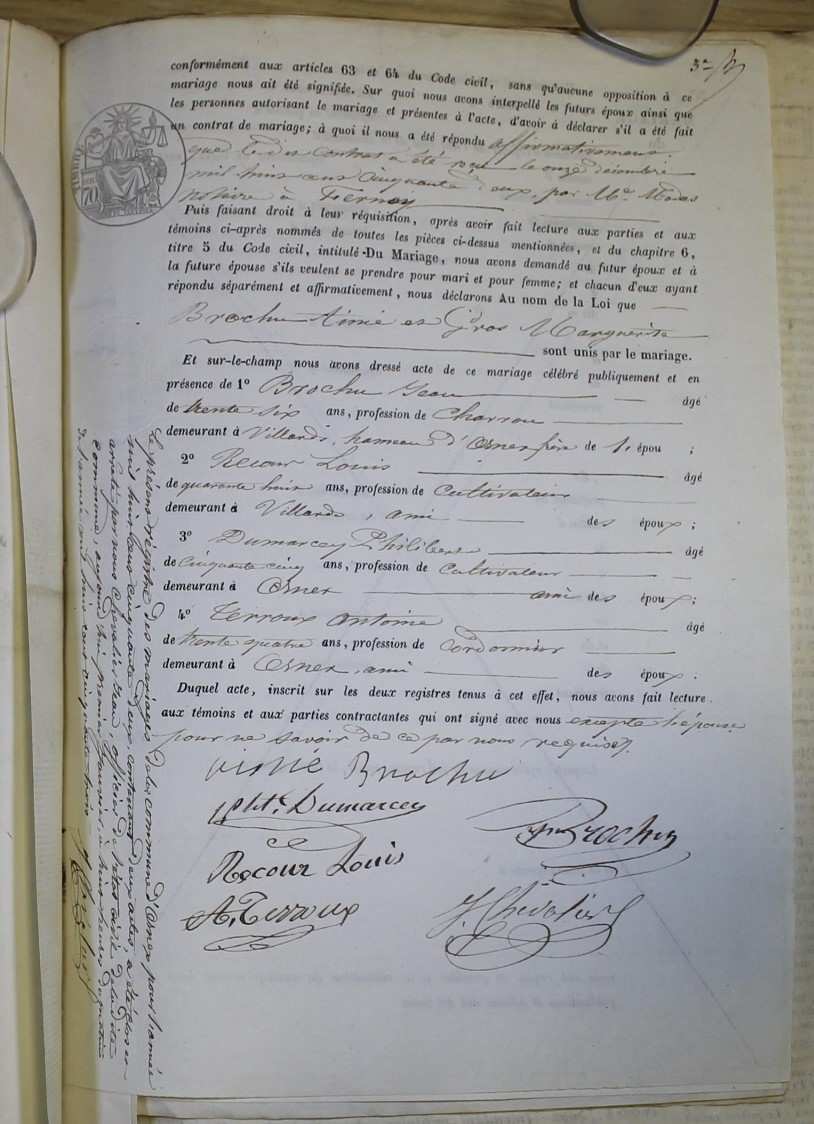 3e
conformément aux articles 63 et 64 du Code civil, sans qu'aucune opposition à ce
mariage nous ait été signifiée. Sur quoi nous avons interpellé les futurs époux ainsi que
les personnes autorisant le mariage et présentes à l'acte, d'avoir à déclarer s'il a été fait
un contrat de mariage; à quoi il nous a été répondu affirmativement
que le dit contrat a été reçu le onze décembre
mil huit cent cinquante deux, par Me. Modas
notaire à Fernex
Puis faisant droit à leur réquisition, après avoir fait lecture aux parties et aux
témoins ci-après nommés de toutes les pièces ci-dessus mentionnées, et du chapitre 6,
titre 5 du Code civil, intitulé Du Mariage, nous avons demandé au futur époux et à
la future épouse s'ils veulent se prendre pour mari et pour femme; et chacun d'eux ayant
répondu séparément et affirmativement, nous déclarons Au nom de la Loi que
Brochu Aimé et Gros Marguerite
sont unis par le mariage.
Et sur-le-champ nous avons dressé acte de ce mariage célébré publiquement et en
présence de 1º Brochu Jean âgé
de trente six ans, profession de Charron
demeurant à Villards, hameau d'Ornex frère de l'épou ;
2º Recour Louis âgé
de quarante huit ans, profession de Cultivateur
demeurant à Villards, ami des époux;
3º Dumarcey Philibert âgé
de Cinquante cinq ans, profession de Cultivateur
demeurant à Ornex ami des époux;
4º Terroux Antoine âgé
de trente quatre ans, profession de Cordonnier
demeurant à Ornex, ami des époux.
Duquel acte, inscrit sur les deux registres tenus à cet effet, nous avons fait lecture
aux témoins et aux parties contractantes qui ont signé avec nous excepté l'épouse
pour ne savoir de ce par nous requise.
Brochu
Pht. Dumarcey
Jn Brochu
Recour Louis
A. Terroux
J. Chevalier
Le présent régistre des mariages de la commune d'Ornex pour l'année
mil huit cent cinquante deux, contenant deux actes, a été clos et
arrêté par nous Chevalier Jean officier de l'état civil de la dite
commune, aujourd'hui premier janvier à huit heures du matin
de l'année mil huit cent cinquante trois
J. Chevalier